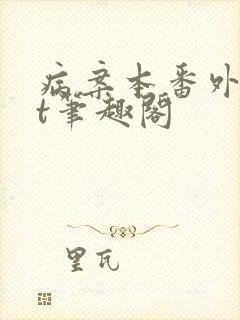 病案本番外
t笔趣阁
里瓦